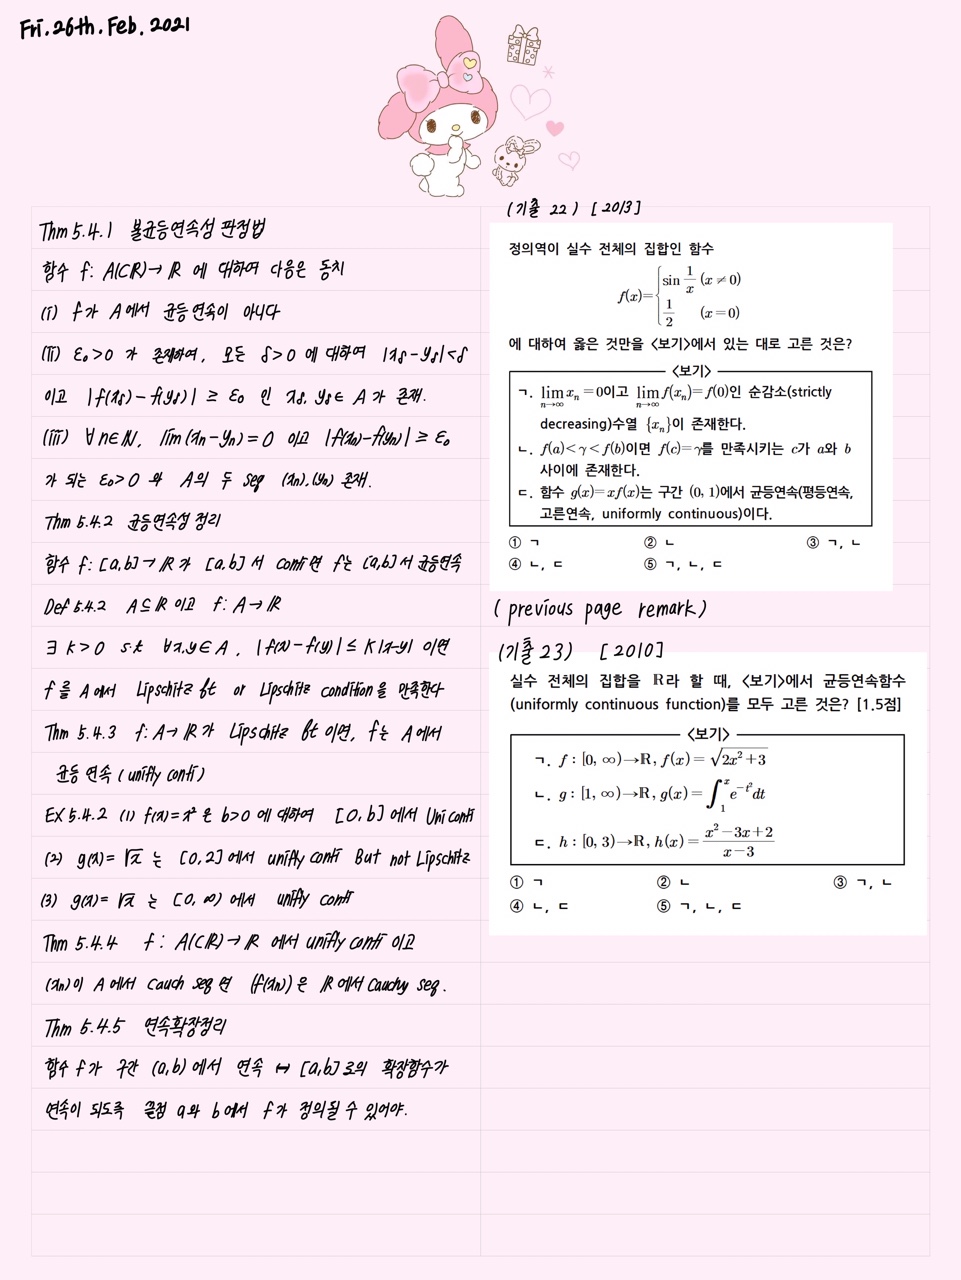 Fri. 26th. Feb. 2021
Thm 5.4.1 불균등연속성 판정법
함수 f: A(⊂ℝ)→ℝ 에 대하여 다음은 동치
(i) f가 A에서 균등연속이 아니다
(ii) ε₀>0 가 존재하여, 모든 δ>0 에 대하여 |x_δ-y_δ|<δ
이고 |f(x_δ)-f(y_δ)| ≥ ε₀ 인 x_δ, y_δ∈A 가 존재.
(iii) ∀n∈ℕ, lim(x_n-y_n)=0 이고 |f(x_n)-f(y_n)| ≥ ε₀
가 되는 ε₀>0 와 A의 두 seq (x_n),(y_n) 존재.
Thm 5.4.2 균등연속성 정리
함수 f: [a,b]→ℝ가 [a,b]서 conti면 f는 [a,b]서 균등연속
Def 5.4.2 A⊆ℝ이고 f: A→ℝ
∃ K>0 s.t ∀x,y∈A, |f(x)-f(y)| ≤ K|x-y| 이면
f를 A에서 Lipschitz ft or Lipschitz condition을 만족한다
Thm 5.4.3 f: A→ℝ가 Lipschitz ft 이면, f는 A에서
균등 연속 (unifly conti)
EX 5.4.2 (1) f(x)=x² 은 b>0 에 대하여 [0,b]에서 Uni conti
(2) g(x)=√x 는 [0,2]에서 unifly conti But not Lipschitz
(3) g(x)=√x 는 [0,∞) 에서 unifly conti
Thm 5.4.4 f: A(⊂ℝ)→ℝ 에서 unifly conti 이고
(x_n)이 A에서 Cauch seq 면 (f(x_n))은 ℝ에서 Cauchy seq.
Thm 5.4.5 연속확장정리
함수 f가 구간 (a,b)에서 연속 ↔ [a,b]로의 확장함수가
연속이 되도록 끝점 a와 b에서 f가 정의될 수 있어야.
(기출 22) [2013]
정의역이 실수 전체의 집합인 함수
f(x)={ sin 1/x (x≠0)
1/2 (x=0)
에 대하여 옳은 것만을 <보기>에서 있는 대로 고른 것은?
<보기>
ㄱ. lim_{n→∞} x_n=0이고 lim_{n→∞} f(x_n)=f(0)인 순감소(strictly
decreasing)수열 {x_n}이 존재한다.
ㄴ. f(a)<γ<f(b)이면 f(c)=γ를 만족시키는 c가 a와 b
사이에 존재한다.
ㄷ. 함수 g(x)=xf(x)는 구간 (0, 1)에서 균등연속(평등연속,
고른연속, uniformly continuous)이다.
① ㄱ ② ㄴ ③ ㄱ, ㄴ
④ ㄴ, ㄷ ⑤ ㄱ, ㄴ, ㄷ
(previous page remark)
(기출 23) [2010]
실수 전체의 집합을 ℝ라 할 때, <보기>에서 균등연속함수
(uniformly continuous function)를 모두 고른 것은? [1.5점]
<보기>
ㄱ. f : [0, ∞)→ℝ, f(x)=√(2x²+3)
ㄴ. g : [1, ∞)→ℝ, g(x)=∫₁ˣ e^{-t²}dt
ㄷ. h : [0, 3)→ℝ, h(x)=(x²-3x+2)/(x-3)
① ㄱ ② ㄴ ③ ㄱ, ㄴ
④ ㄴ, ㄷ ⑤ ㄱ, ㄴ, ㄷ